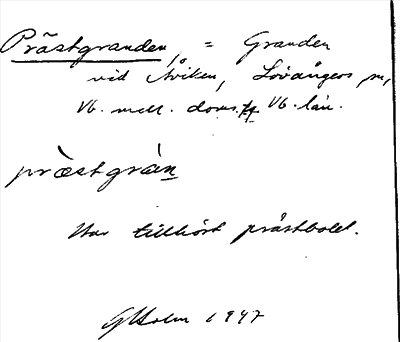 Prästgranden, = Granden
vid Åviken, Lövångers sn,
Vb. mell. doms. Vb. län.
prästgràn
Har tillhört prästbolet.
GHolm 1947